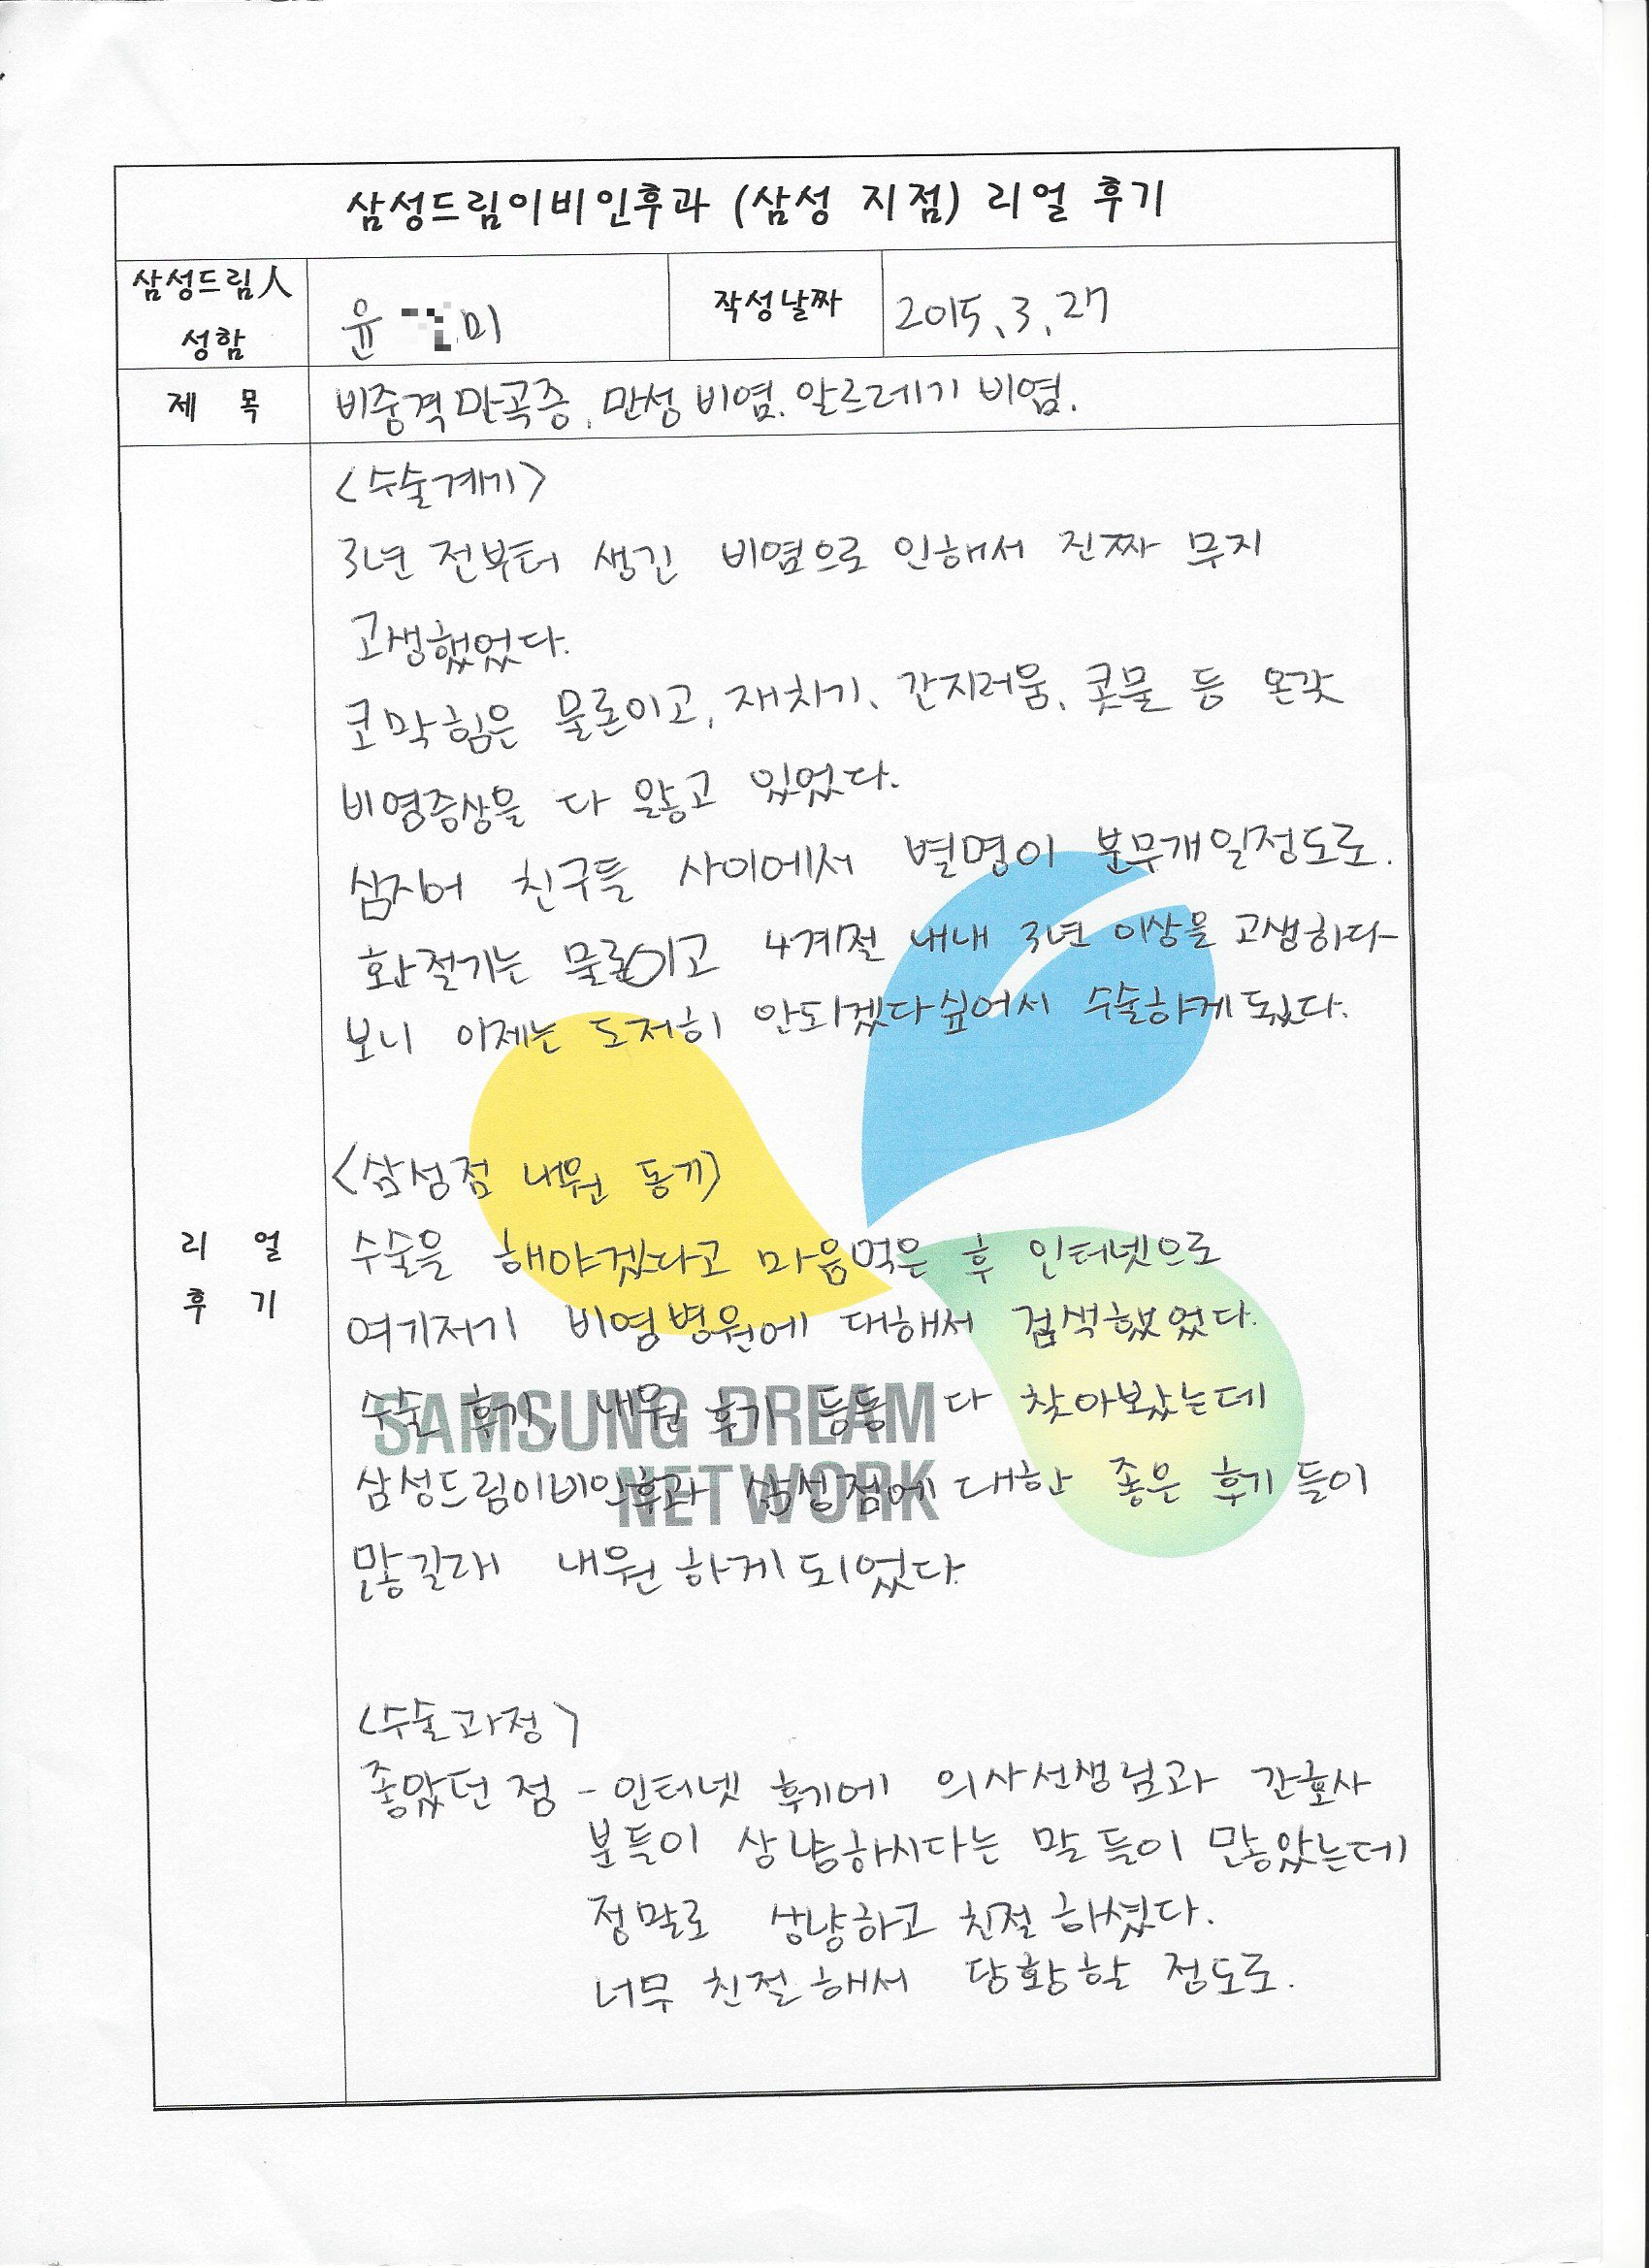 삼성드림이비인후과 (삼성 지점) 리얼 후기
삼성드림人
성함
윤 미
작성날짜
2015. 3. 27
제 목
비중격만곡증. 만성 비염. 알르레기 비염.
<수술계기>
3년 전부터 생긴 비염으로 인해서 진짜 무지
고생했었다.
코막힘은 물론이고, 재치기, 간지러움, 콧물 등 온갖
비염증상을 다 앓고 있었다.
심지어 친구들 사이에서 별명이 분무개일정도로.
환절기는 물론이고 4계절 내내 3년 이상을 고생하다
보니 이제는 도저히 안되겠다싶어서 수술하게됬다.
<삼성점 내원 동기>
리 얼
후 기
수술을 해야겠다고 마음먹은 후 인터넷으로
여기저기 비염병원에 대해서 검색했었다.
수술 후기, 내원 후기 등등 다 찾아봤는데
SAMSUNG DREAM
삼성드림이비인후과 삼성점에 대한 좋은 후기들이
NETWORK
많길래 내원하게되었다.
<수술과정>
좋았던 점 - 인터넷 후기에 의사선생님과 간호사
분들이 상냥하시다는 말들이 많았는데
정말로 상냥하고 친절하셨다.
너무 친절해서 당황할 정도로.